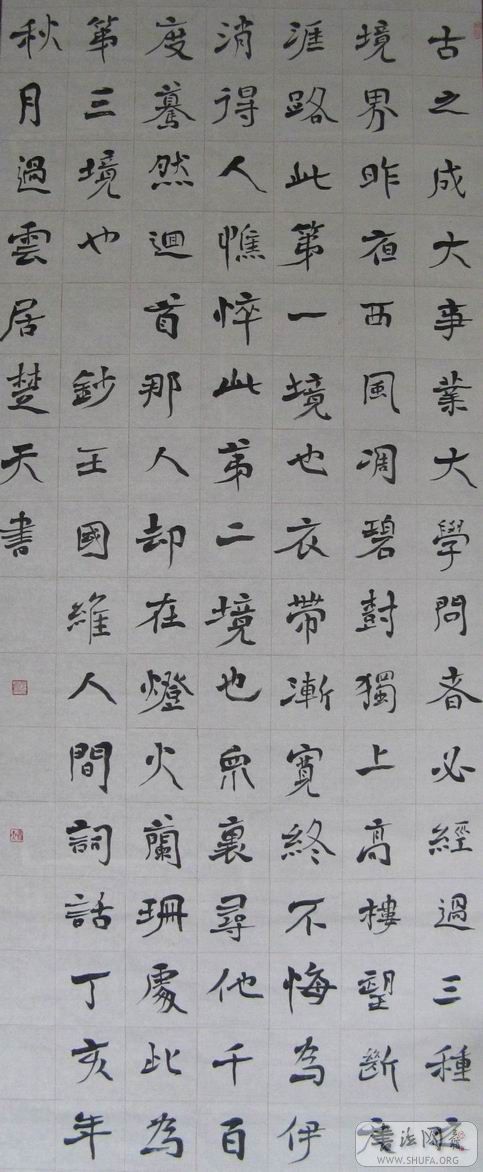 古之成大事業大學問者必經過三種
境界昨夜西風凋碧對獨上高樓望斷
涯路此第一境也衣帶漸寬終不悔為伊
消得人憔悴此第二境也眾裏尋他千百
度驀然迴首那人却在燈火蘭珊處此為
第三境也 鈔王國維人間詞話丁亥年
秋月過雲居楚天書
书法网
WWW.SHUFA.ORG